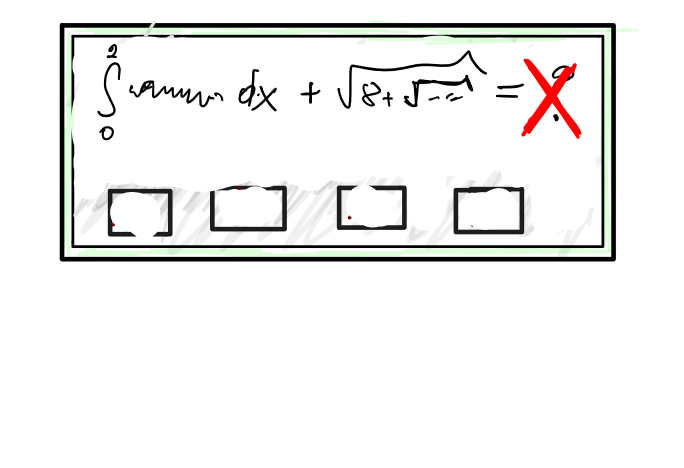 ∫₀² dx + √(8+√) = ?